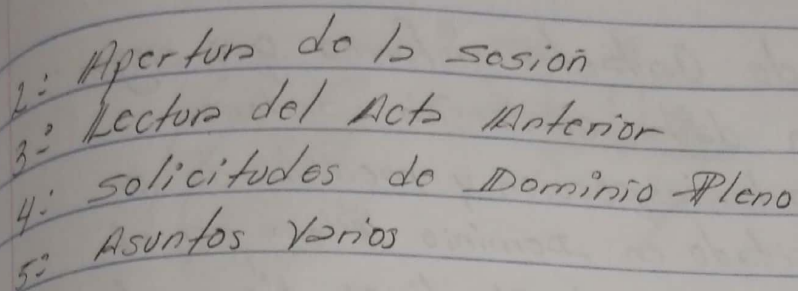 2: Apertura de la sesión
3: Lectura del Acta Anterior
4: Solicitudes de Dominio Pleno
5: Asuntos Varios